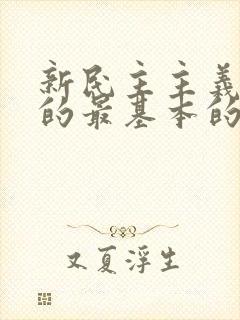 新民主主義
的最基本的
又夏浮生